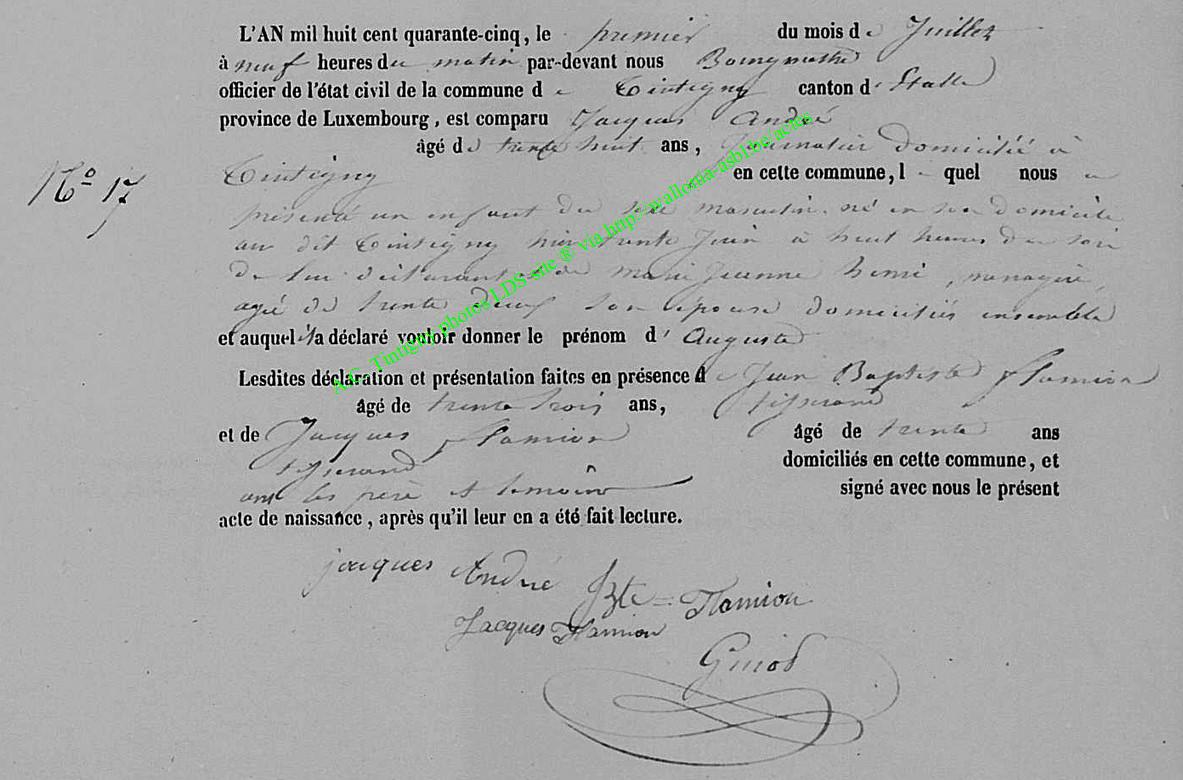 L'AN mil huit cent quarante-cinq, le premier du mois de Juillet
à neuf heures du matin par-devant nous Bourgmestre
officier de l'état civil de la commune de Tintigny canton d'Etalle
province de Luxembourg, est comparu Jacques André
âgé de trente huit ans, domicilié à
N° 17
Tintigny en cette commune, lequel nous a
présenté un enfant du sexe masculin né en son domicile
au dit Tintigny hier trente Juin à huit heures du soir
de lui déclarant et de Marie Jeanne ménagère,
agé de trente son épouse domiciliés ensemble
et auquel il a déclaré vouloir donner le prénom d'Auguste
Lesdites déclaration et présentation faites en présence de Jean Baptiste Flamion
âgé de trente trois ans, tisserand
et de Jacques Flamion âgé de trente ans
tisserand domiciliés en cette commune, et
ont les père et témoins signé avec nous le présent
acte de naissance, après qu'il leur en a été fait lecture.
jacques André Jbte = Flamion
Jacques Flamion
A.C. Tintigny photos LDS-site ® via http://wallonia-asbl.be/actes